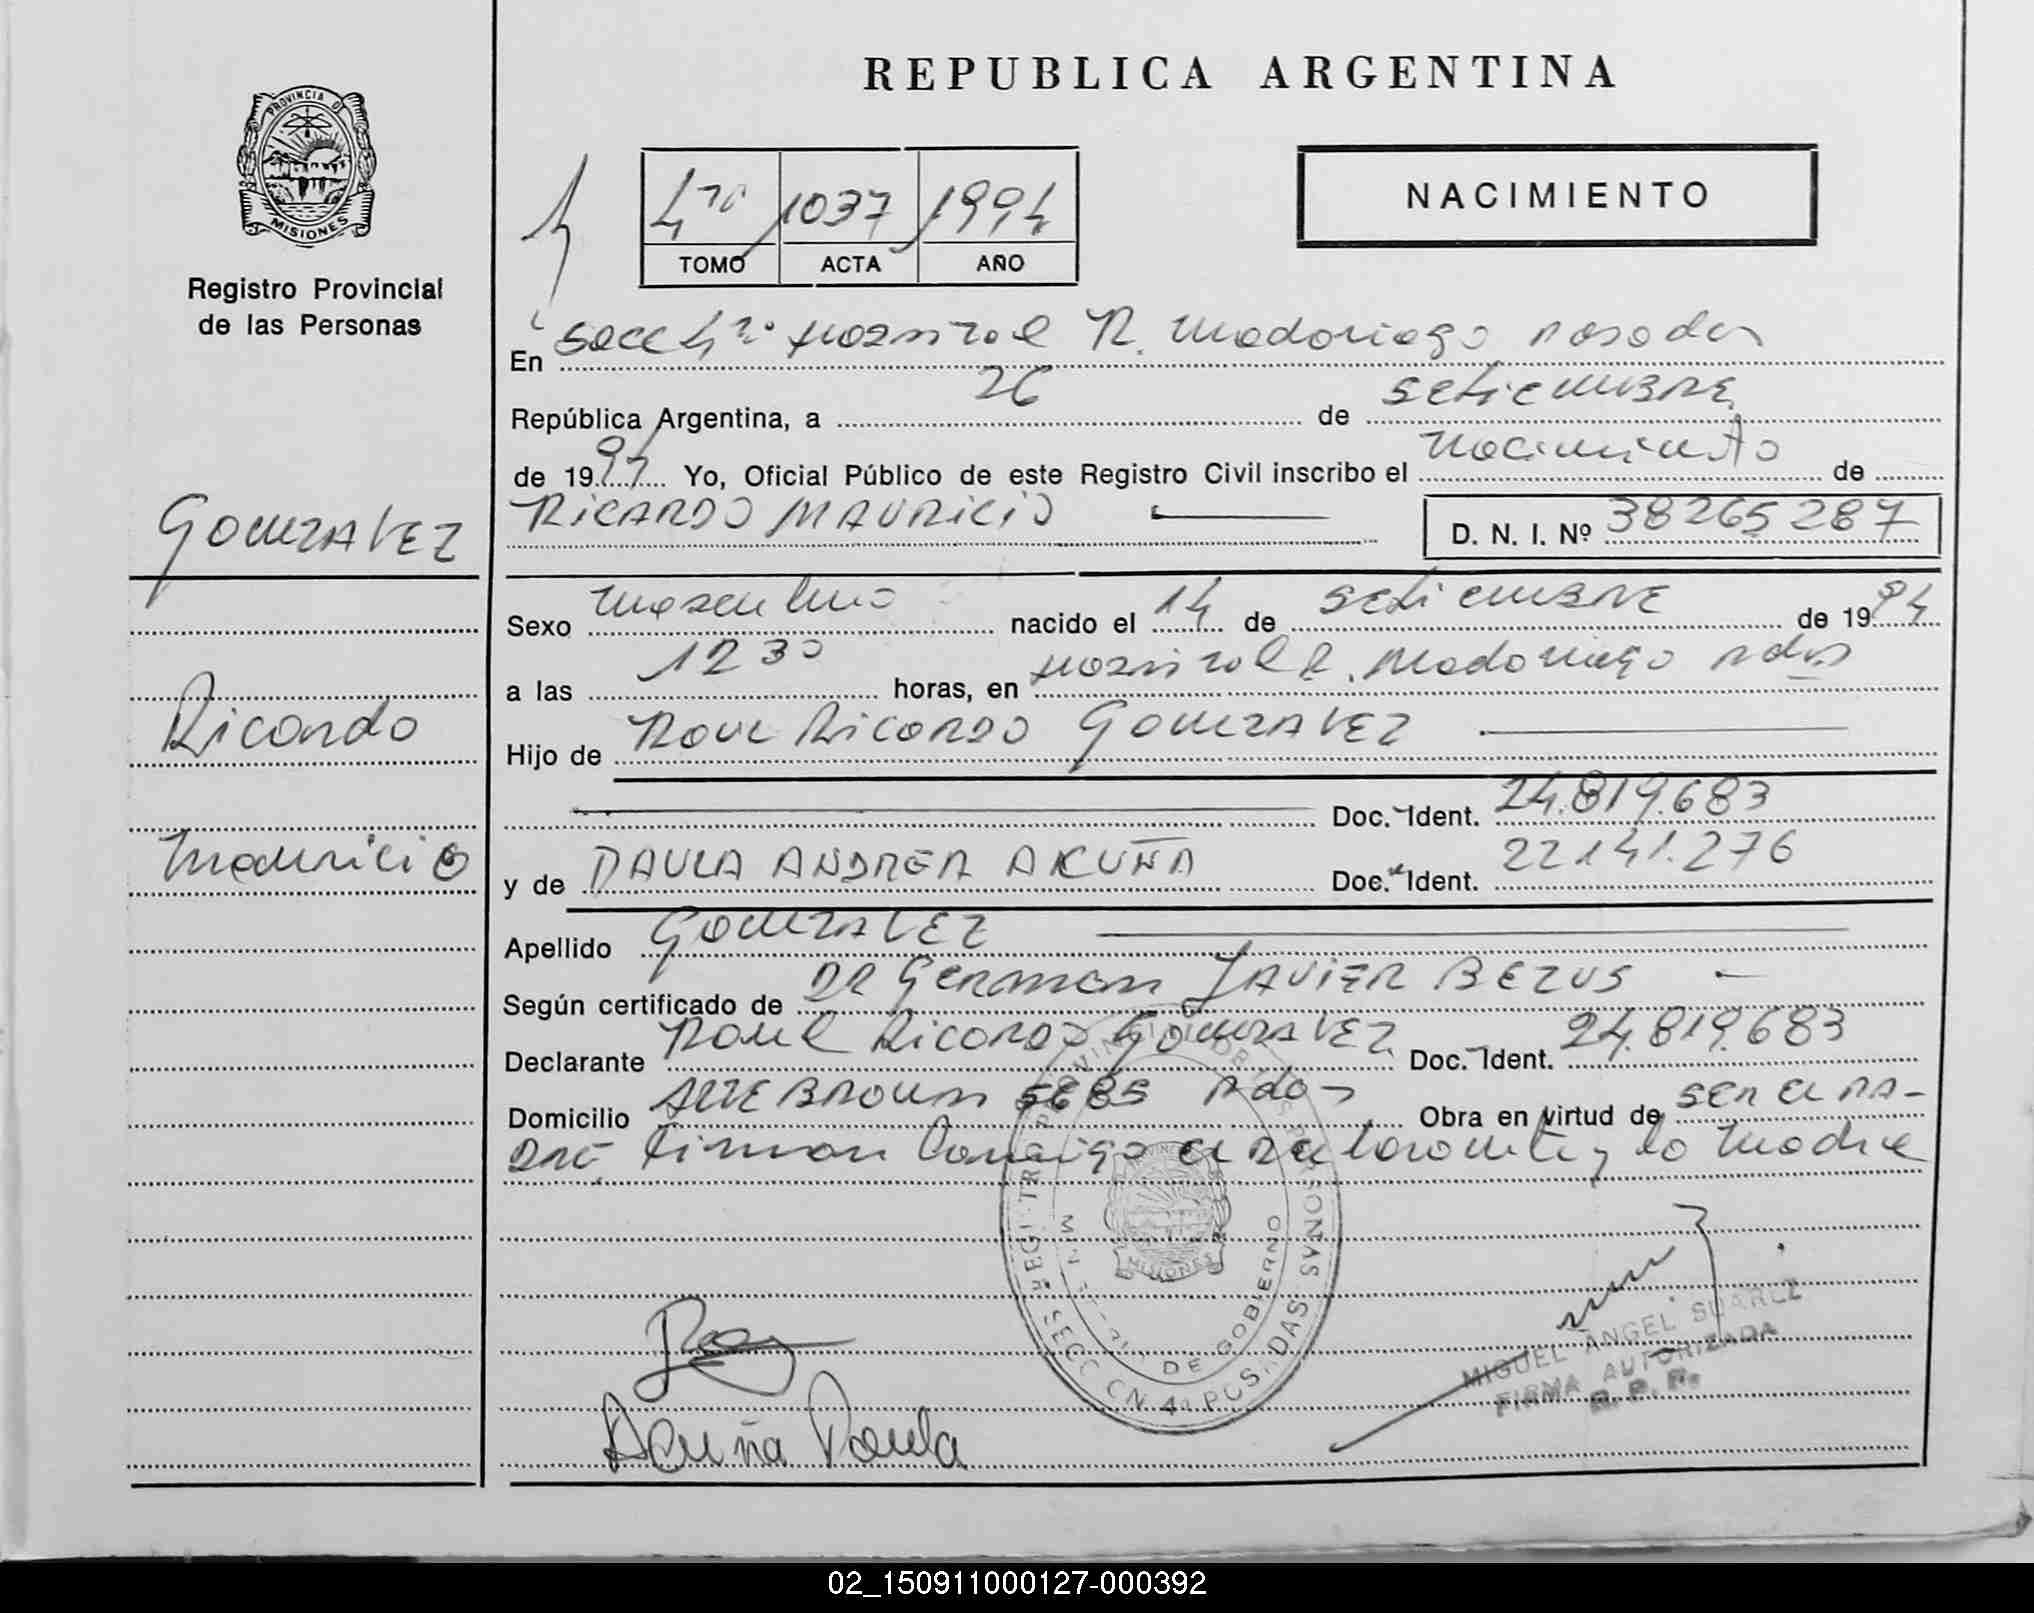 REPUBLICA ARGENTINA
PROVINCIA DE
MISIONES
Registro Provincial
de las Personas
4to 1037 1994
TOMO ACTA AÑO
NACIMIENTO
En Secc 4ta Hospital R. Madariaga Posadas
República Argentina, a 26 de Setiembre
de 1994 Yo, Oficial Público de este Registro Civil inscribo el Nacimiento de
RICARDO MAURICIO
D. N. I. Nº 38265287
GONZALEZ
Ricardo
Mauricio
Sexo Masculino nacido el 14 de Setiembre de 1994
a las 12 30 horas, en Hospital R. Madariaga Pdas
Hijo de Raul Ricardo GONZALEZ
Doc. Ident. 24.819.683
y de PAULA ANDREA ACUÑA Doc. Ident. 22141.276
Apellido GONZALEZ
Según certificado de DR German JAVIER BEZUS
Declarante Raul Ricardo GONZALEZ Doc. Ident. 24.819.683
Domicilio ALTE BROWN 5685 Pdas Obra en virtud de ser el PA-
DRE Firman Conmigo el declarante y la Madre
REGISTRO PROVINCIAL DE LAS PERSONAS
MINISTERIO DE GOBIERNO
MISIONES
SECCION 4a POSADAS
Acuña Paula
MIGUEL ANGEL SUAREZ
FIRMA AUTORIZADA
R. P. P.
02_150911000127-000392